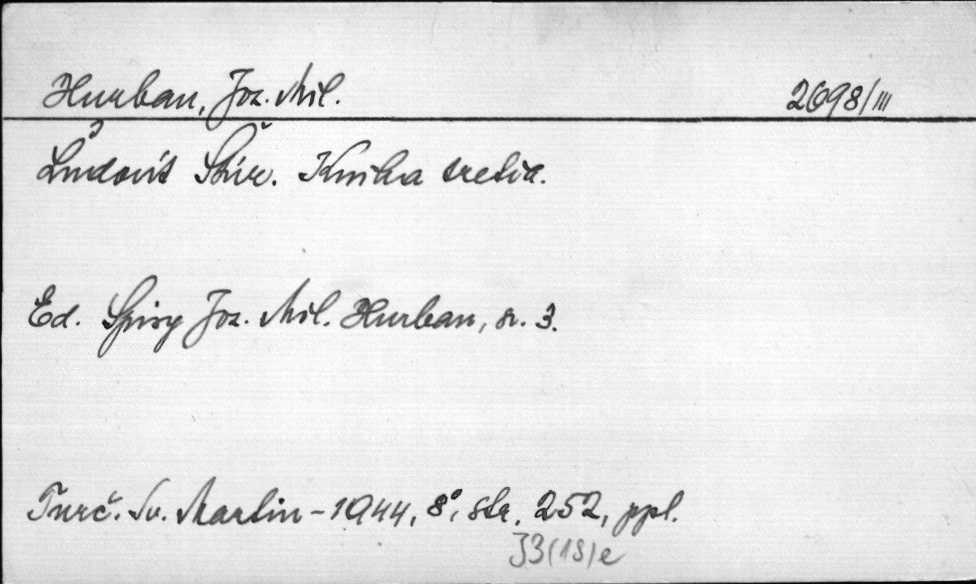 Hurban, Joz. Mil. 2698/III
Ľudovít Štúr. Kniha tretia.
Ed. Spisy Joz. Mil. Hurban, sv. 3.
Turč. Sv. Martin - 1944, 8°, str. 252, ppl.
J3(1S)e